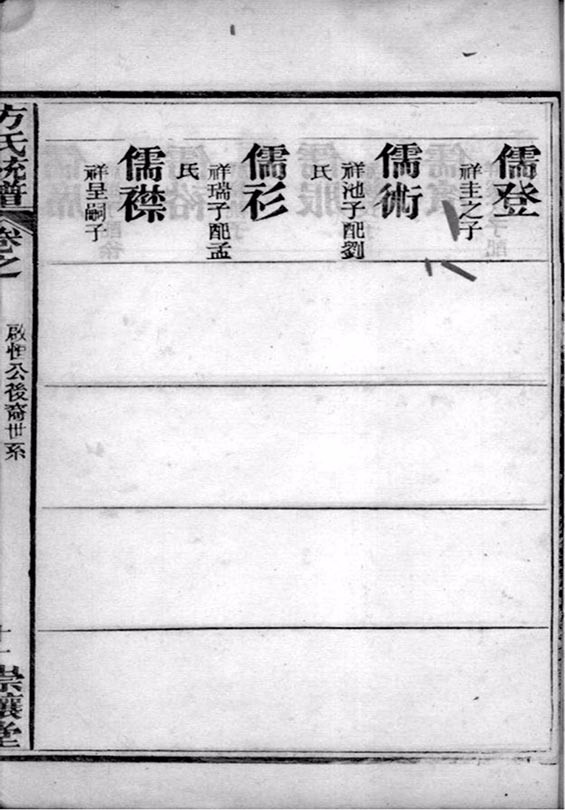 儒登
祥圭之子
儒術
祥池子配劉
氏
儒衫
祥瑞子配孟
氏
儒襟
祥呈嗣子
方氏統譜
卷之
啟恒公後裔世系
十一
崇讓堂